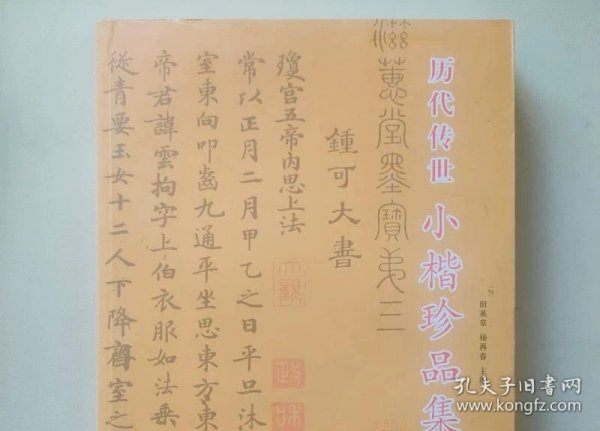 历代传世
小楷珍品集
田英章 杨再春 主
蕙堂墨寶弟三
鍾可大書
瓊宫五帝内思上法
常以正月二月甲乙之日平旦沐
室東向叩齒九通平坐思東方東
帝君諱雲拘字上伯衣服如法乗
從青要玉女十二人下降齋室之
大觀
政
孔夫子旧书网
www.kongfz.com